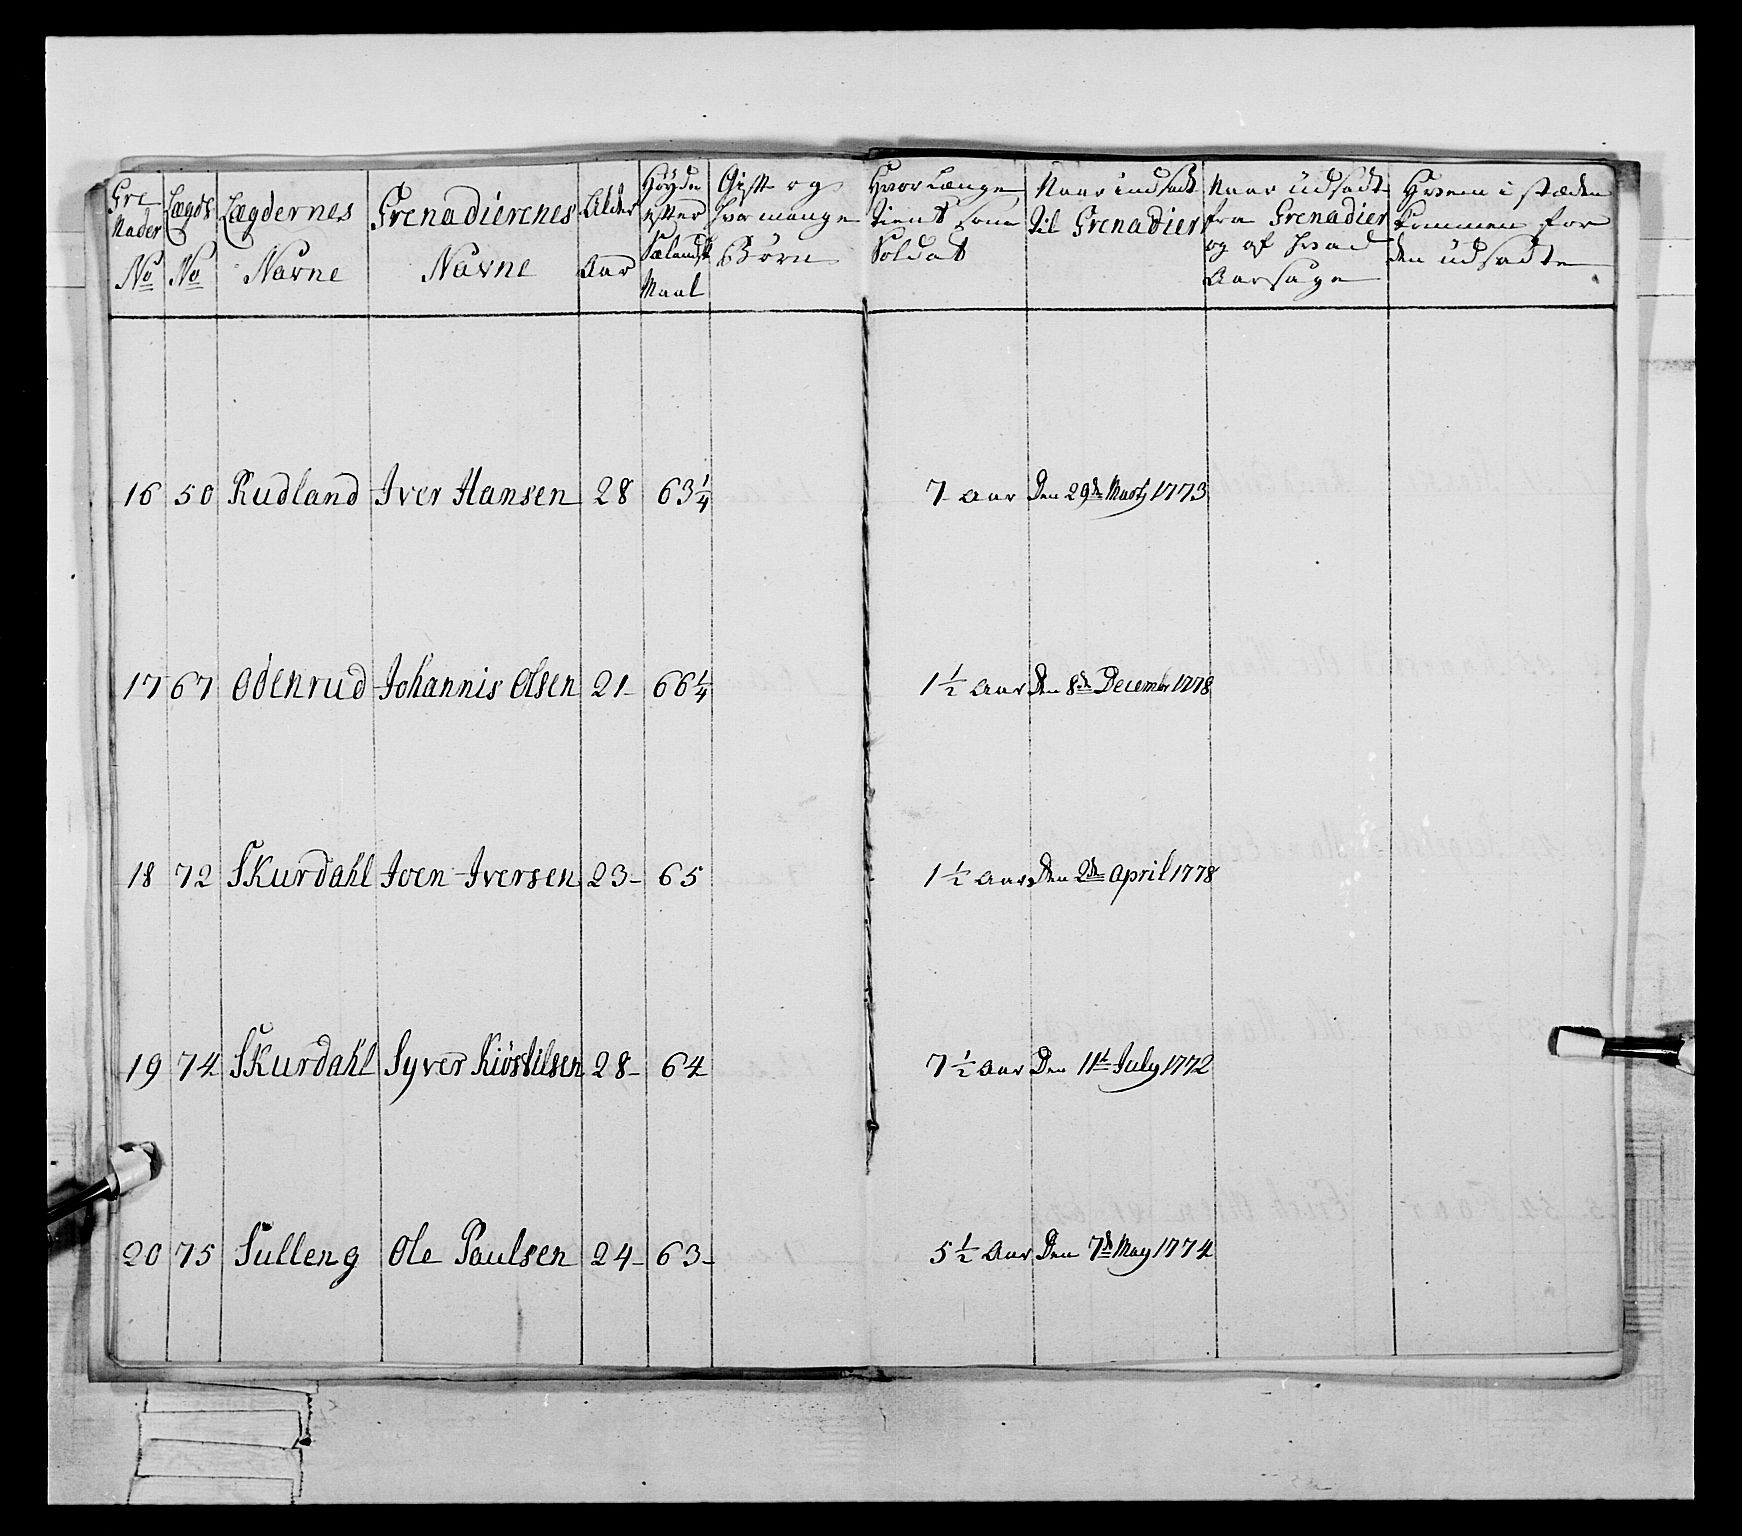 Gre Nader No | Lægds No | Lægdernes Navne | Grenadierenes Navne | Alder Aar | Høyde efter Sælandsk Maal | Gift og hvor mange Børn | Hvor Længe tient som Soldat | Naar indsadt til Grenadier | Naar udsadt fra Grenadier og af hvad Aarsage | Hvem i stæden kommen for den udsadte
16 | 50 | Rudland | Iver Hansen | 28 | 63 1/4 | 7 Aar | Den 29de Marty 1773
17 | 67 | Odenrud | Johannis Olsen | 21 | 66 1/4 | 1 1/2 Aar | Den 8de Decembr 1778
18 | 72 | Skurdahl | Joen Iversen | 23 | 65 | 1 1/2 Aar | Den 2de April 1778
19 | 74 | Skurdahl | Syver Kiöstilsen | 28 | 64 | 7 1/2 Aar | Den 11t July 1772
20 | 75 | Sulleng | Ole Paulsen | 24 | 63 | 5 1/2 Aar | Den 7de May 1774